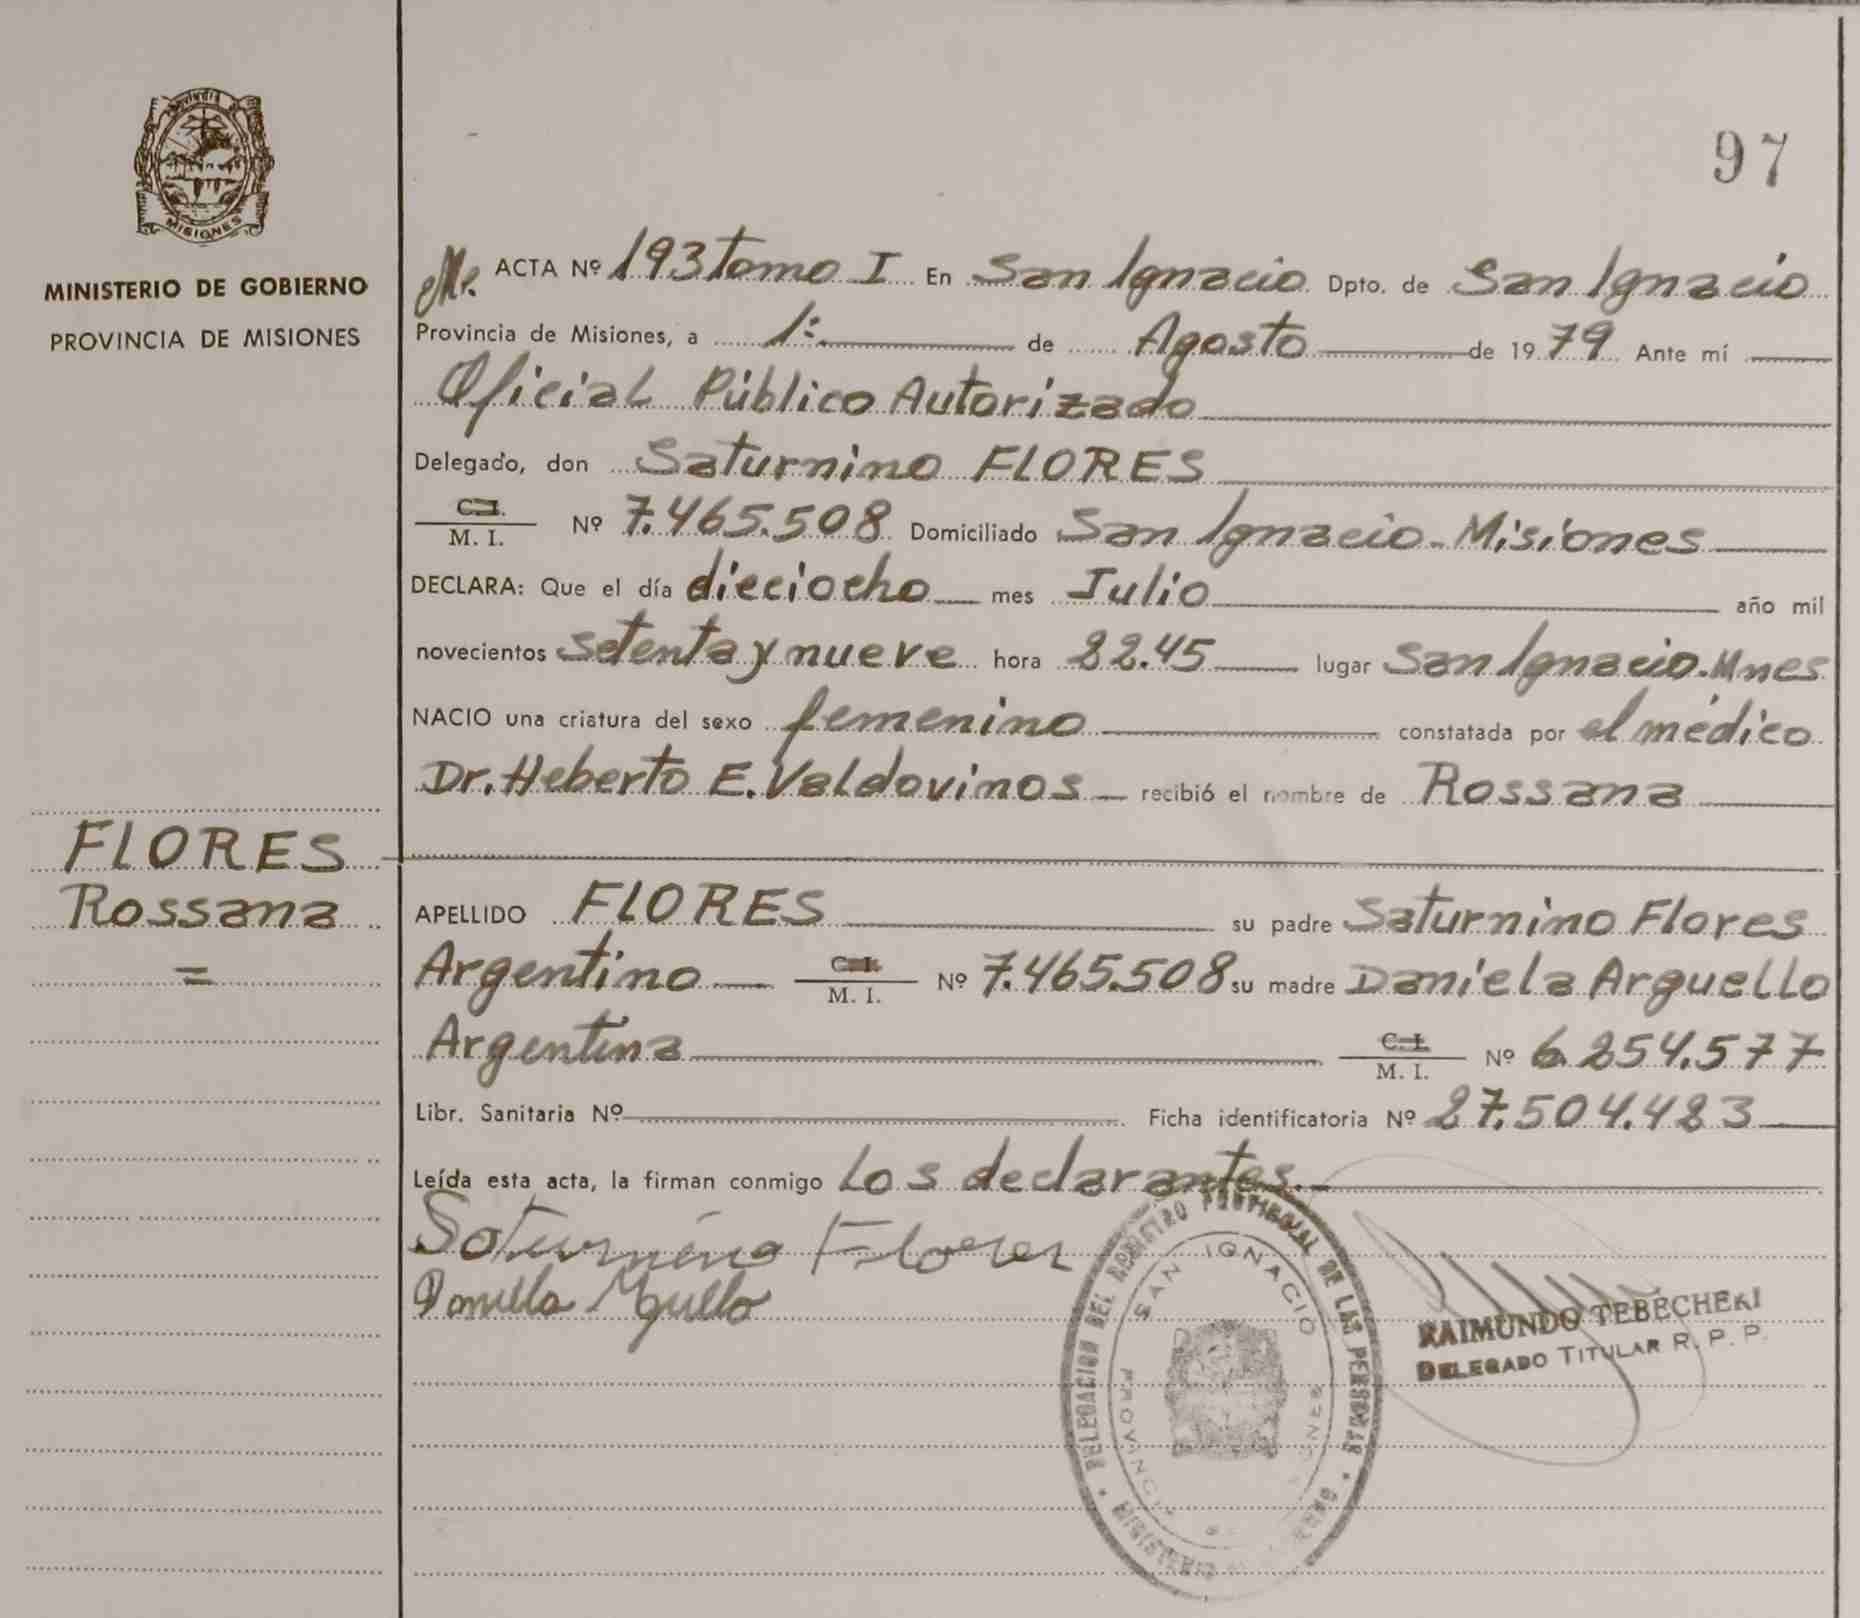 Provincia
MISIONES
MINISTERIO DE GOBIERNO
PROVINCIA DE MISIONES
97
ACTA Nº 193 Tomo I En San Ignacio Dpto. de San Ignacio
Provincia de Misiones, a 1º de Agosto de 1979 Ante mí
Oficial Público Autorizado
Delegado, don Saturnino FLORES
C.I.
M. I. Nº 7.465.508 Domiciliado San Ignacio - Misiones
DECLARA: Que el día dieciocho mes Julio año mil
novecientos setenta y nueve hora 22.45 lugar San Ignacio. Mnes
NACIO una criatura del sexo femenino constatada por el médico
Dr. Heberto E. Valdovinos recibió el nombre de Rossana
FLORES
Rossana
=
APELLIDO FLORES su padre Saturnino Flores
Argentino C.I. M. I. Nº 7.465.508 su madre Daniela Arguello
Argentina C.I. M. I. Nº 6.254.577
Libr. Sanitaria Nº Ficha identificatoria Nº 27.504.423
Leída esta acta, la firman conmigo Los declarantes.
Saturnino Flores
DELEGACION DEL REGISTRO PROVINCIAL DE LAS PERSONAS
SAN IGNACIO
PROVINCIA
RAIMUNDO TEBECHERI
DELEGADO TITULAR R. P. P.